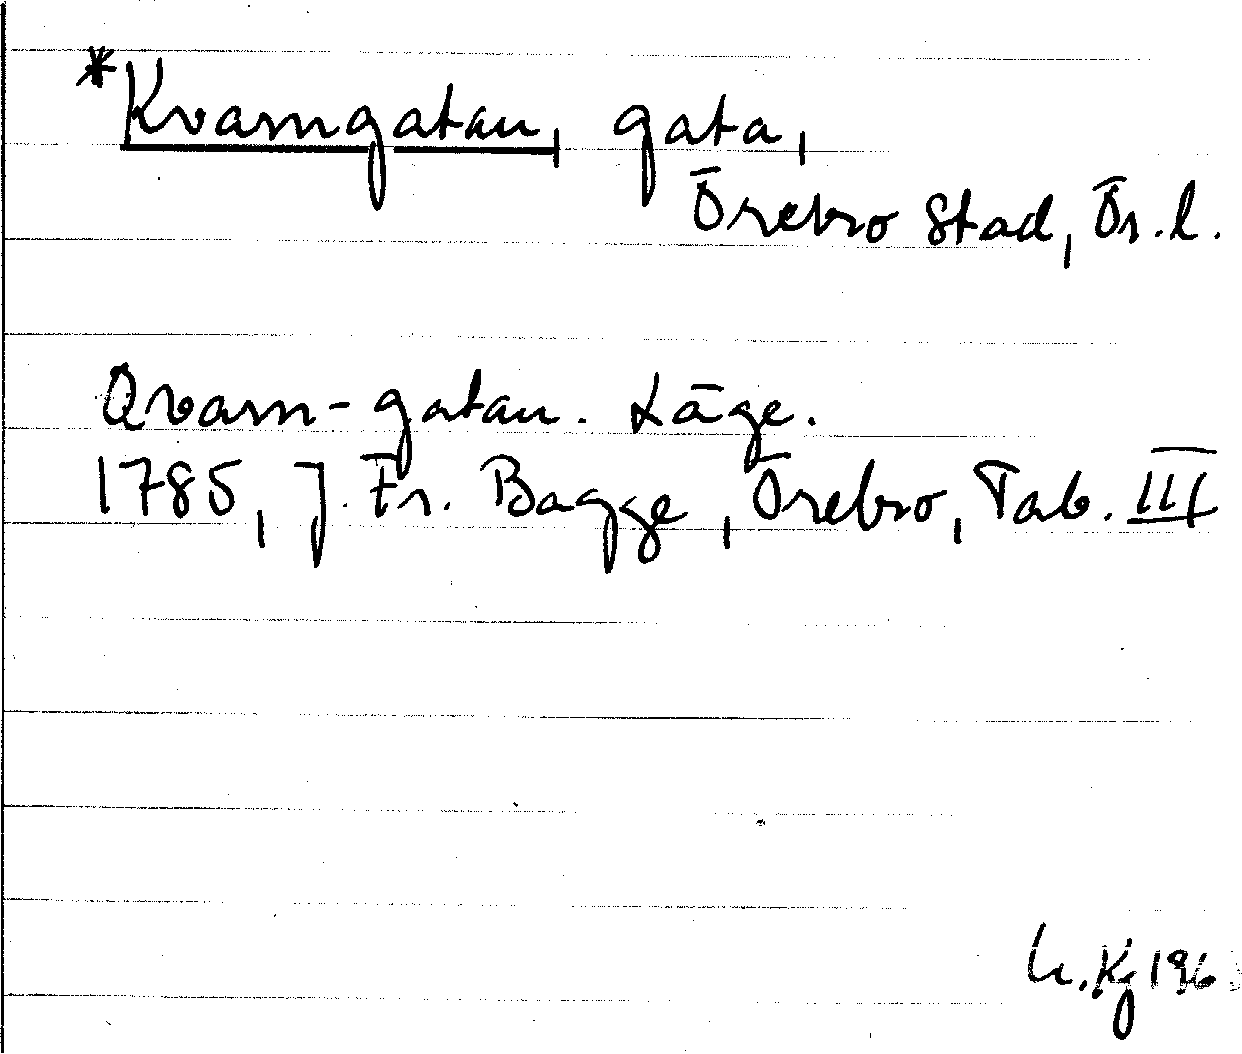 *Kvarngatan, gata,
Örebro stad, Ör.l.
Qvarn-gatan. Läge.
1785, J. Fr. Bagge, Örebro, Tab. III